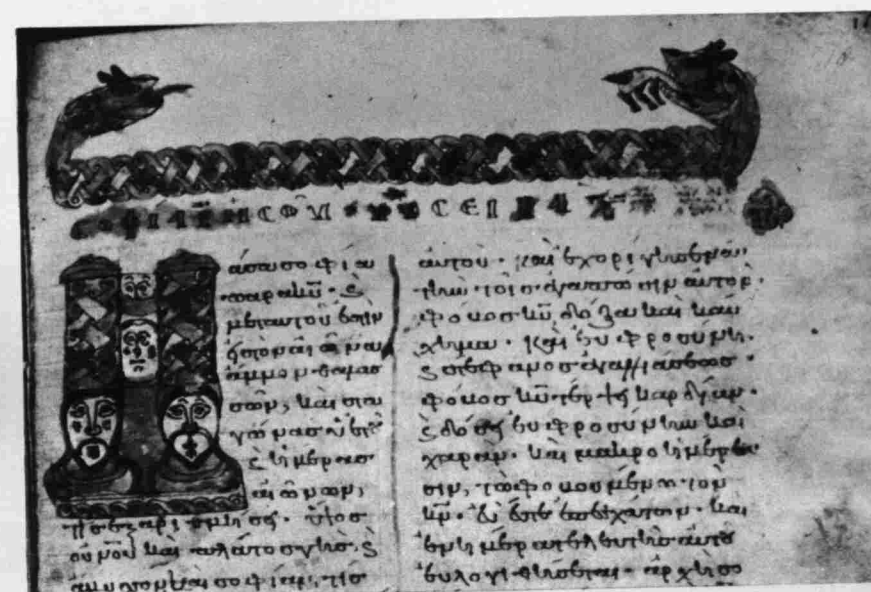 ΣΟΦΙΑ ΙΗΣΟΥ ΥΟΥ ΣΕΙΡΑΧ
Πάσα σοφία
παρα κυ · ϗ
μετ αυτού εστὶν
εἰς τον αιῶνα
ἄμμον θαλασ
σῶν, καὶ στα
γόνας ὑετοῦ
ϗ ἡμέρας
αἰώνων,
τίς ἐξαριθμήσει· ὕψος
οὐνοῦ καὶ πλάτος γῆς, ϗ
ἄβυσσον καὶ σοφίαν, τίς
αὐτοῦ· καὶ ἐχορίγησεν αὐ
τὴν τοῖς ἀγαπῶσιν αὐτόν·
φόβος κυ δόξα καὶ καύ
χημα· καὶ εὐφροσύνη·
ϗ στέφανος ἀγαλλιάσεως·
φόβος κυ τέρψει καρδίαν·
ϗ δόσει εὐφροσύνην καὶ
χαράν· καὶ μακροημέρευ
σιν, τῶ φοβουμένω τὸν
κν· εὖ ἔσται ἐπ ἐσχάτων· καὶ
ἐν ἡμέρα τελευτῆς αὐτοῦ
εὐλογηθήσεται· ἀρχὴ σο